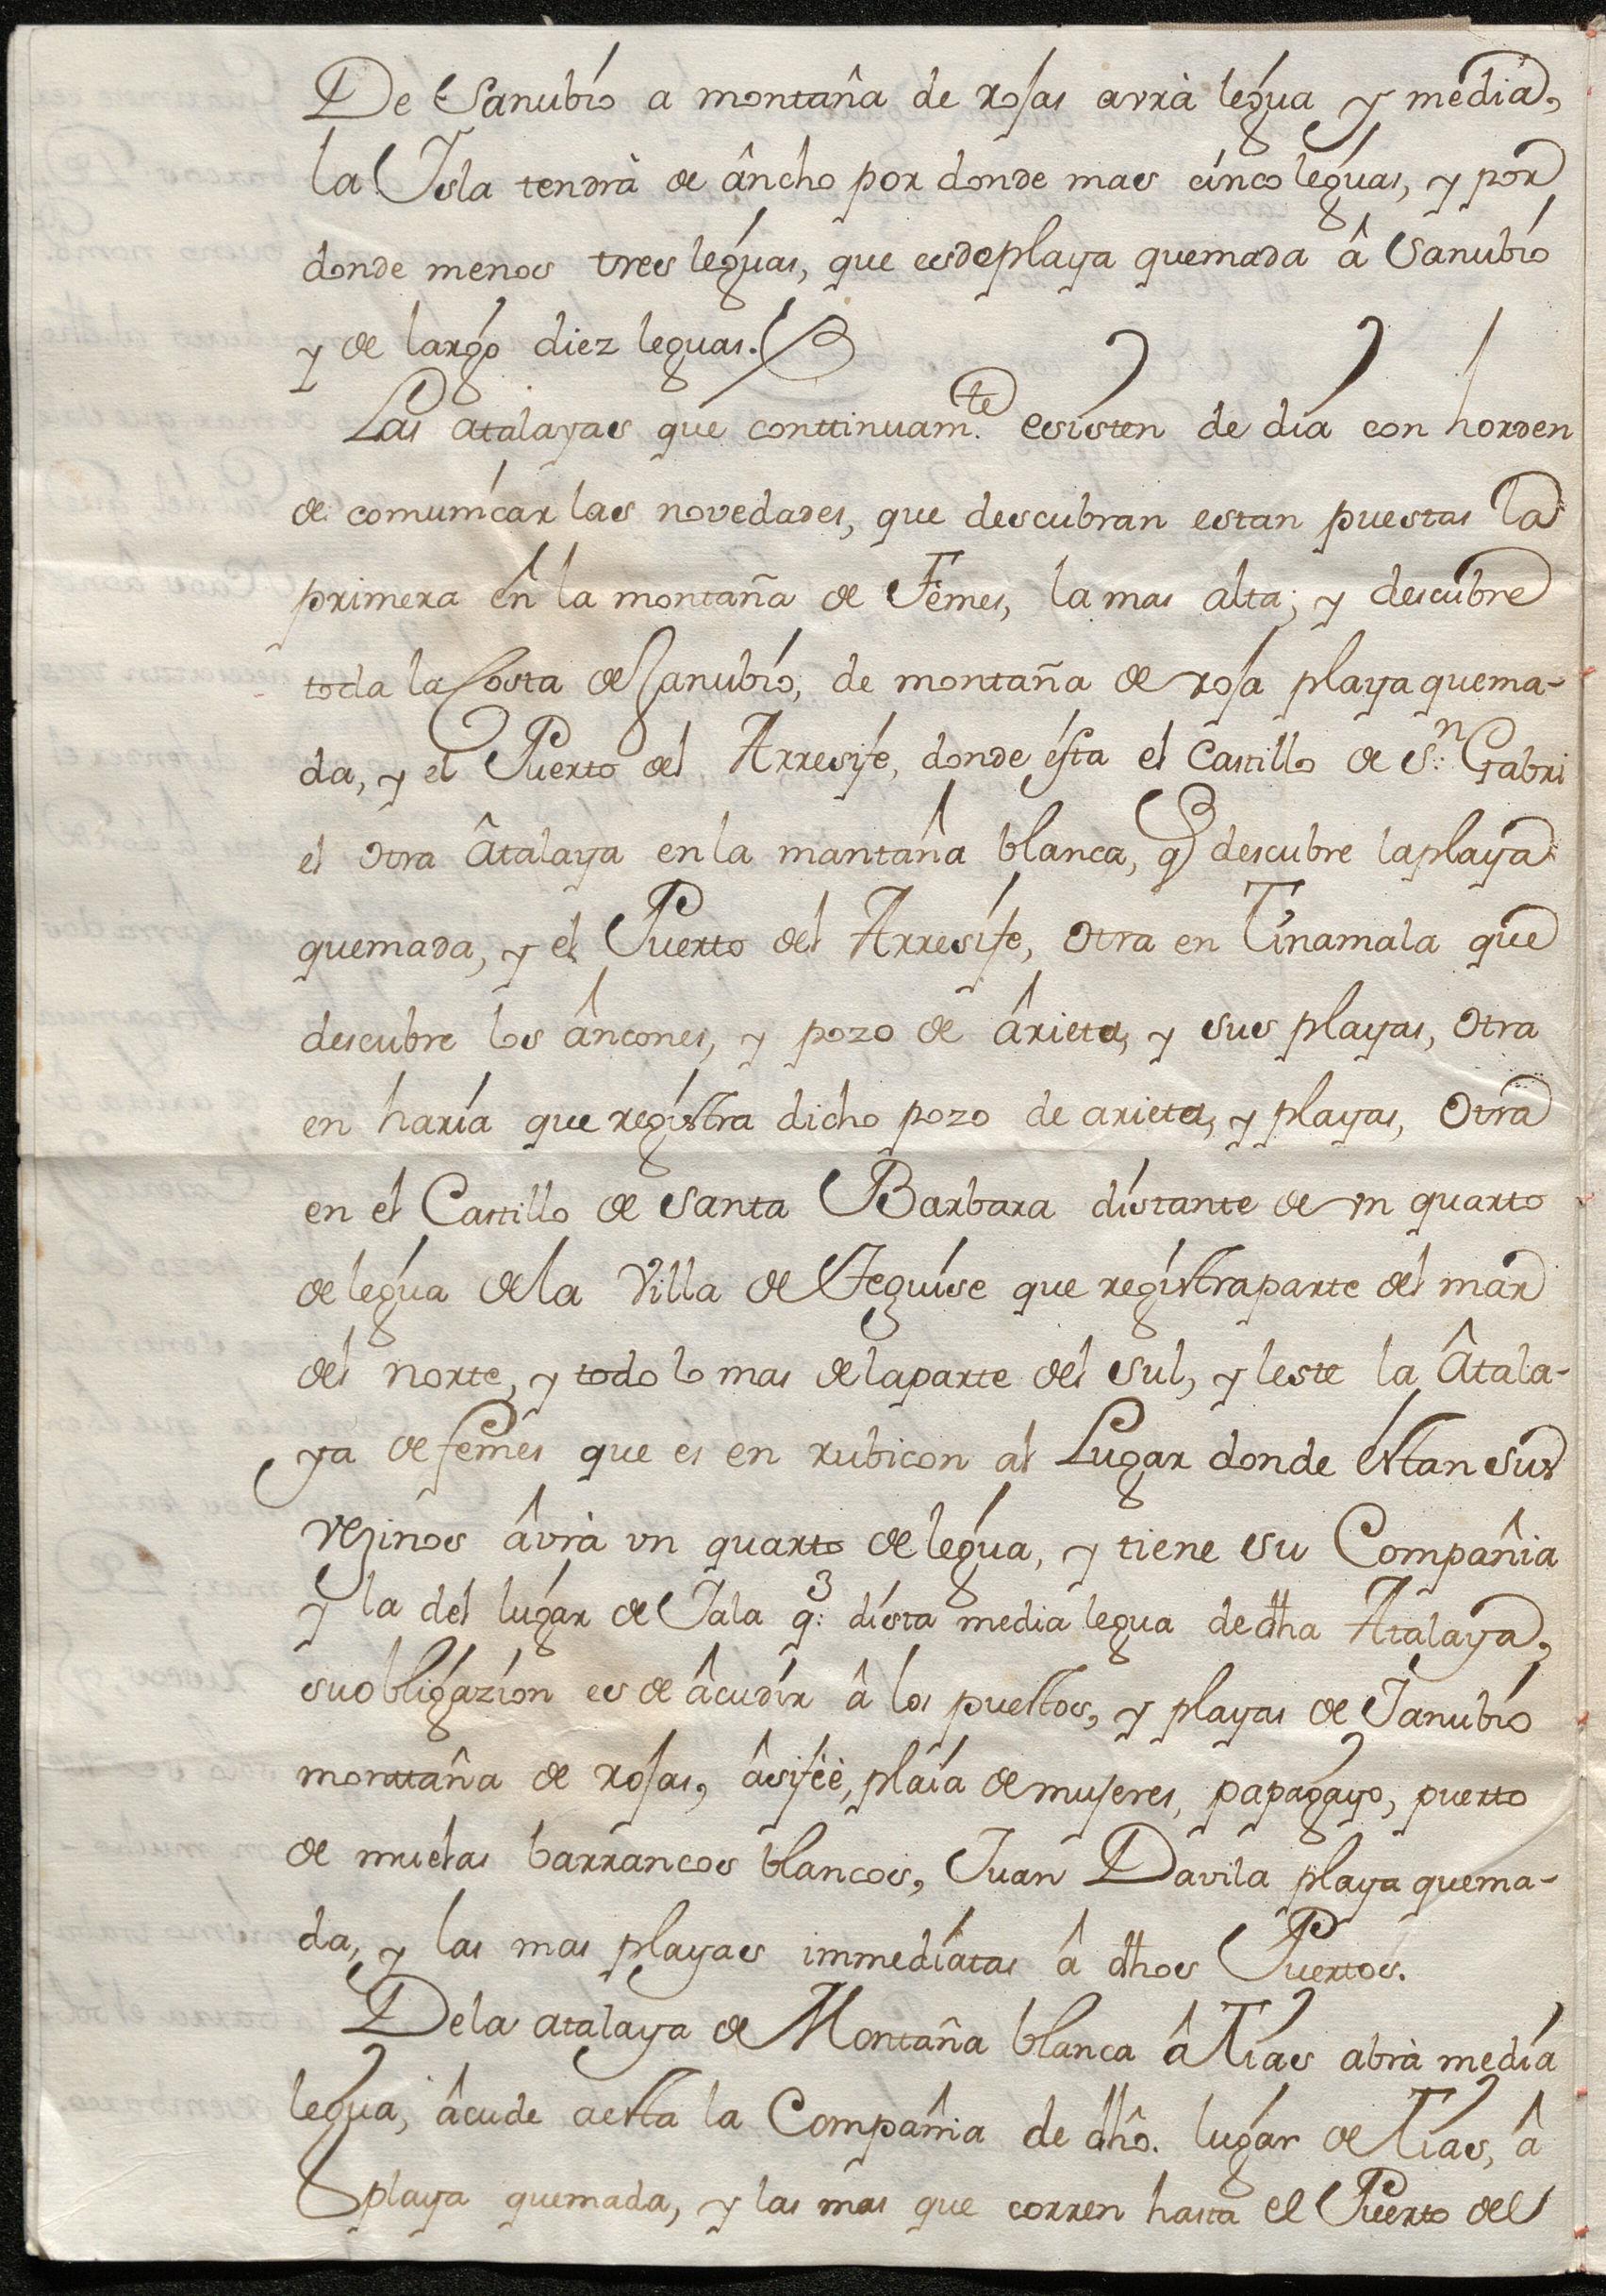 De Sanubío a montaña de rosas avrà legua y media,
la Isla tendrà de âncho por donde mas cinco leguas, y por
donde menos tres leguas, que es de playa quemada â Sanubío
y de largo diez leguas.
Las atalayas que conttinuam.te esisten de dia con horden
de comunicar las novedades, que descubran estan puestas la
primera en la montaña de Femes, la mas alta; y descubre
toda la Costa de Sanubío, de montaña de rosa playa quema-
da, y el Puerto del Arresife, donde ésta el Castillo de S.n Gabri
el otra Âtalaya en la mantaña blanca, q descubre la playa
quemada, y el Puerto del Arresife, otra en Tinamala que
descubre los âncones, y pozo de ârieta, y sus playas, otra
en haría que registra dicho pozo de arieta, y playas, otra
en el Castillo de Santa Barbara distante de vn quarto
de legua de la Villa de Teguise que registra parte del mar
del norte, y todo lo mas de la parte del Sul, y leste la Âtala-
ya de femes que es en rubicon al Lugar donde estan sus
vezinos âvrà vn quarto de legua, y tiene su Compañia
y la del lugar de Iala q.e dista media legua de dha Atalaya,
su obligazion es de âcudir â los puestos, y playas de Janubío
monttaña de rosas, âsifeè, plaía de mujeres, papagayo, puerto
de muelas barrancos blancos, Juan Davila playa quema-
da, y las mas playas immediatas â dhos Puertos.
De la atalaya de Montaña blanca â Tías abrà media
legua, âcude aesta la Compañia de dhô. lugar de Tías, â
playa quemada, y las mas que corren hasta el Puerto del